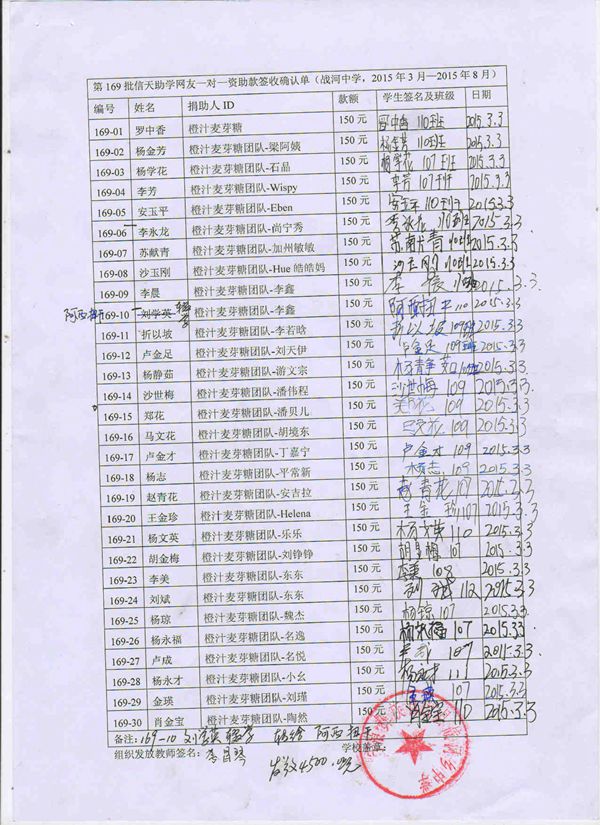 第169批信天助学网友一对一资助款签收确认单（战河中学，2015年3月—2015年8月）
编号 姓名 捐助人ID 款额 学生签名及班级 日期
169-01 罗中香 橙汁麦芽糖 150元 罗中香 110班 2015.3.3
169-02 杨金芳 橙汁麦芽糖团队-梁阿姨 150元 杨金芳 110班 2015.3.3
169-03 杨学花 橙汁麦芽糖团队-石晶 150元 杨学花 107班 2015.3.3
169-04 李芳 橙汁麦芽糖团队-Wispy 150元 李芳 107班 2015.3.3
169-05 安玉平 橙汁麦芽糖团队-Eben 150元 安玉平 110班 2015.3.3
169-06 李永龙 橙汁麦芽糖团队-尚宁秀 150元 李永龙 2015.3.3
169-07 苏献青 橙汁麦芽糖团队-加州敏敏 150元 2015.3.3
169-08 沙玉刚 橙汁麦芽糖团队-Hue皓皓妈 150元 沙玉刚 2015.3.3
169-09 李晨 橙汁麦芽糖团队-李鑫 150元 2015.3.3.
169-10 刘学英 辍学 橙汁麦芽糖团队-李鑫 150元 110 2015.3.3
169-11 折以坡 橙汁麦芽糖团队-李若晗 150元 折以坡 109 2015.3.3
169-12 卢金足 橙汁麦芽糖团队-刘天伊 150元 卢金足 109 2015.3.3
169-13 杨静茹 橙汁麦芽糖团队-游文宗 150元 杨静茹 2015.3.3
169-14 沙世梅 橙汁麦芽糖团队-潘伟程 150元 沙世梅 109 2015.3.3.
169-15 郑花 橙汁麦芽糖团队-潘贝儿 150元 109 2015.3.3
169-16 马文花 橙汁麦芽糖团队-胡境东 150元 109 2015.3.3
169-17 卢金才 橙汁麦芽糖团队-丁嘉宁 150元 卢金才 109 2015.3.3
169-18 杨志 橙汁麦芽糖团队-平常新 150元 杨志 109 2015.3.3
169-19 赵青花 橙汁麦芽糖团队-安吉拉 150元 赵青花 107 2015.3.3
169-20 王金珍 橙汁麦芽糖团队-Helena 150元 王金珍 107 2015.3.3
169-21 杨文英 橙汁麦芽糖团队-乐乐 150元 杨文英 110 2015.3.3
169-22 胡金梅 橙汁麦芽糖团队-刘铮铮 150元 107 2015.3.3
169-23 李美 橙汁麦芽糖团队-东东 150元 李美 108 2015.3.3
169-24 刘斌 橙汁麦芽糖团队-东东 150元 刘斌 112 2015.3.3
169-25 杨琼 橙汁麦芽糖团队-魏杰 150元 杨琼 107 2015.3.3
169-26 杨永福 橙汁麦芽糖团队-名逸 150元 杨永福 107 2015.3.3
169-27 卢成 橙汁麦芽糖团队-名悦 150元 107 2015.3.3
169-28 杨永才 橙汁麦芽糖团队-小幺 150元 杨永才 111 2015.3.3
169-29 金瑛 橙汁麦芽糖团队-刘瑾 150元 107 2015.3.3
169-30 肖金宝 橙汁麦芽糖团队-陶然 150元 肖金宝 110 2015.3.3
备注：169-10 刘学英辍学 转给 阿西
组织发放教师签名：李昌琴 学校盖章：
发放4500.元